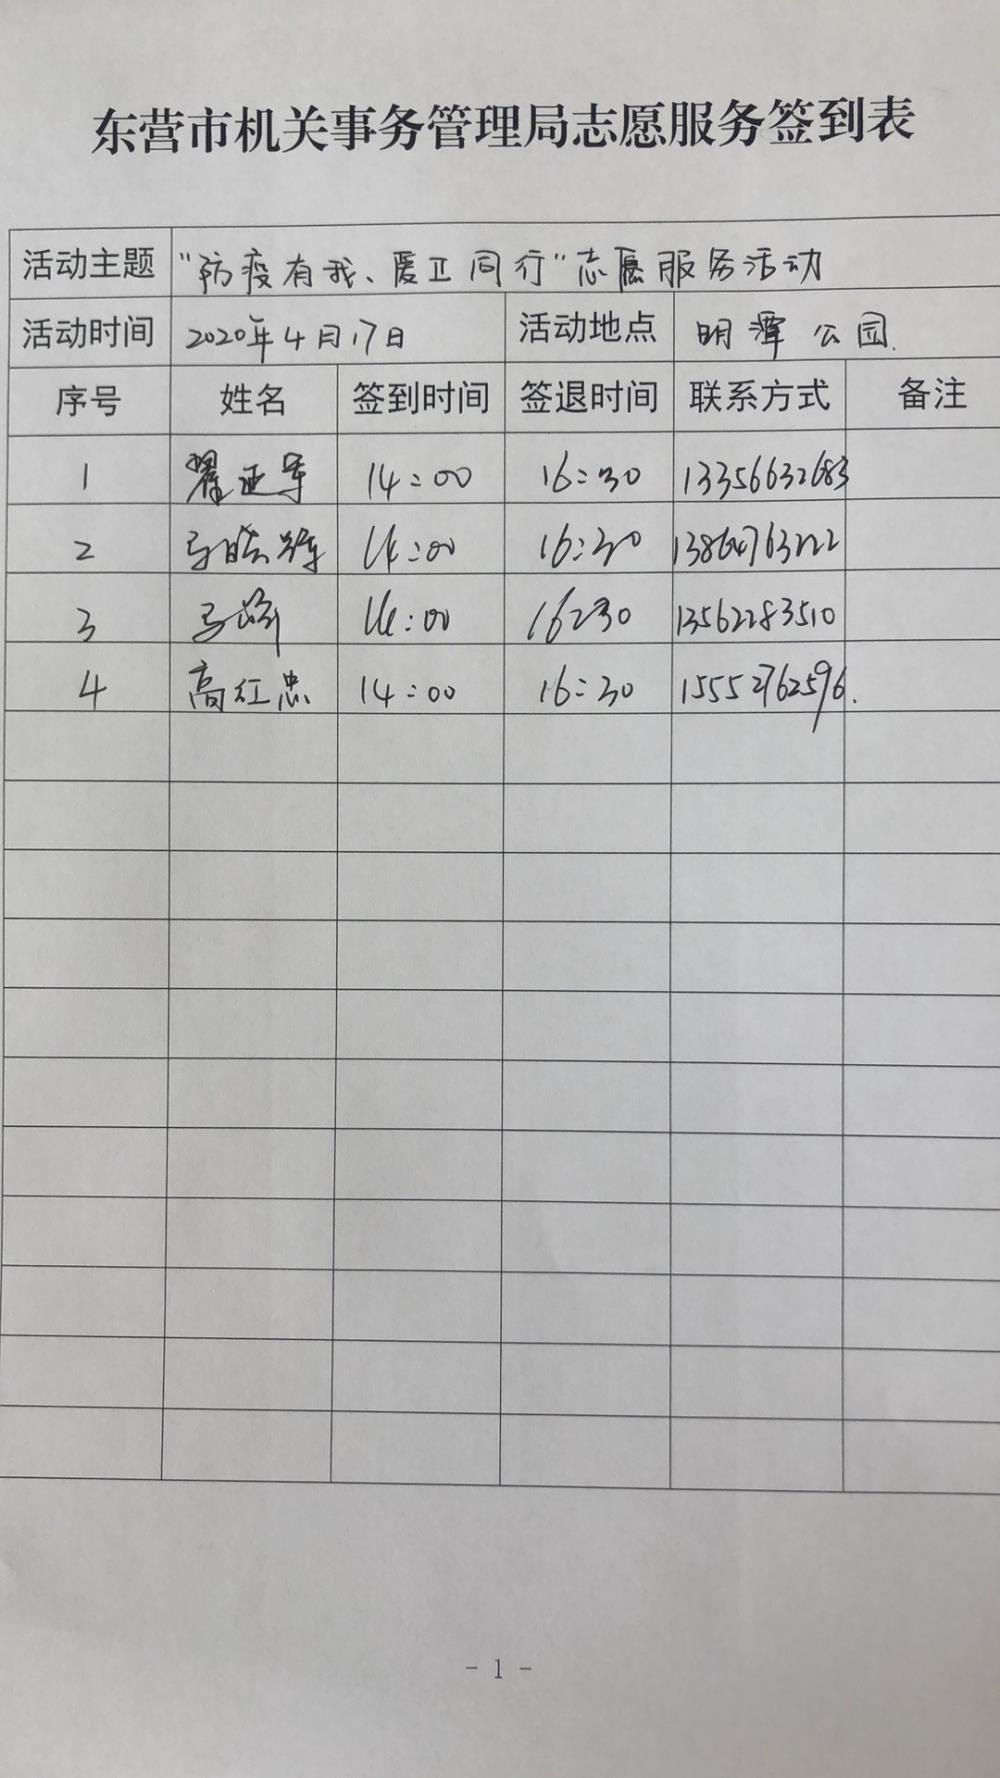 东营市机关事务管理局志愿服务签到表
活动主题 "防疫有我、爱卫同行"志愿服务活动
活动时间 2020年4月17日 活动地点 明潭公园.
序号 姓名 签到时间 签退时间 联系方式 备注
1 翟亚军 14:00 16:30 13356632683
2 14:00 16:30 13864763222
3 马峰 14:00 16:30 13562283510
4 高红忠 14:00 16:30 15552762596.
- 1 -